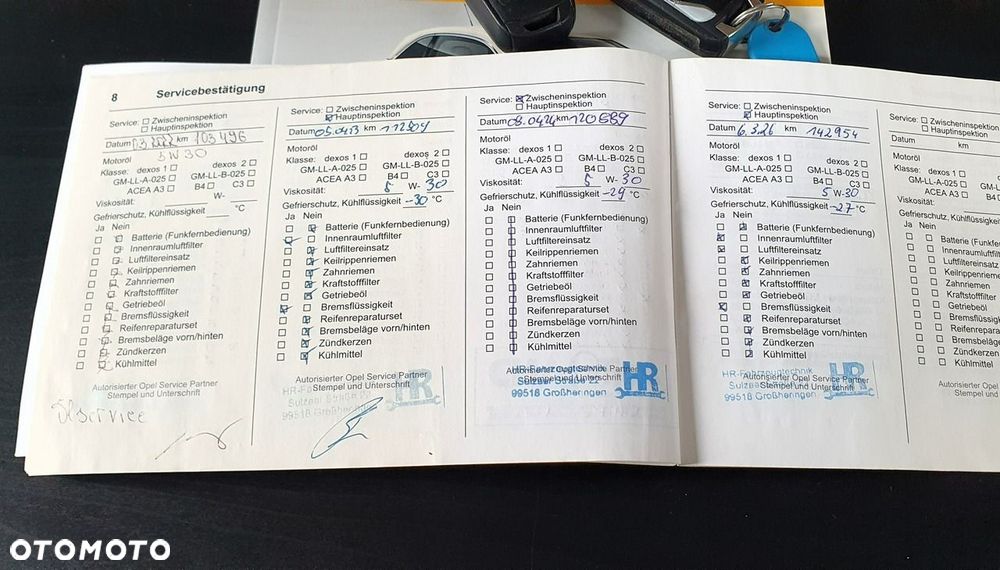 8 Servicebestätigung
Service: Zwischeninspektion
Hauptinspektion
Datum km 103496
5W30
Motoröl
Klasse: dexos 1 dexos 2
GM-LL-A-025 GM-LL-B-025
ACEA A3 B4 C3
Viskosität: W-
Gefrierschutz, Kühlflüssigkeit °C
Ja Nein
Batterie (Funkfernbedienung)
Innenraumluftfilter
Luftfiltereinsatz
Keilrippenriemen
Zahnriemen
Kraftstofffilter
Getriebeöl
Bremsflüssigkeit
Reifenreparaturset
Bremsbeläge vorn/hinten
Zündkerzen
Kühlmittel
Autorisierter Opel Service Partner
Stempel und Unterschrift
Ölservice
Service: Zwischeninspektion
Hauptinspektion
Datum km
Motoröl
Klasse: dexos 1 dexos 2
GM-LL-A-025 GM-LL-B-025
ACEA A3 B4 C3
Viskosität: 5 W- 30
Gefrierschutz, Kühlflüssigkeit -30 °C
Ja Nein
Batterie (Funkfernbedienung)
Innenraumluftfilter
Luftfiltereinsatz
Keilrippenriemen
Zahnriemen
Kraftstofffilter
Getriebeöl
Bremsflüssigkeit
Reifenreparaturset
Bremsbeläge vorn/hinten
Zündkerzen
Kühlmittel
Autorisierter Opel Service Partner
Stempel und Unterschrift
HR-Fahrzeugtechnik
Sulzaer Straße 22
99518 Großheringen
HR
Service: Zwischeninspektion
Hauptinspektion
Datum 08.0424 km 120689
Motoröl
Klasse: dexos 1 dexos 2
GM-LL-A-025 GM-LL-B-025
ACEA A3 B4 C3
Viskosität: 5 W- 30
Gefrierschutz, Kühlflüssigkeit -29 °C
Ja Nein
Batterie (Funkfernbedienung)
Innenraumluftfilter
Luftfiltereinsatz
Keilrippenriemen
Zahnriemen
Kraftstofffilter
Getriebeöl
Bremsflüssigkeit
Reifenreparaturset
Bremsbeläge vorn/hinten
Zündkerzen
Kühlmittel
Autorisierter Opel Service Partner
Stempel und Unterschrift
HR-Fahrzeugtechnik
Sulzaer Straße 22
99518 Großheringen
HR
Service: Zwischeninspektion
Hauptinspektion
Datum 6.3.26 km 142954
Motoröl
Klasse: dexos 1 dexos 2
GM-LL-A-025 GM-LL-B-025
ACEA A3 B4 C3
Viskosität: 5 W-30
Gefrierschutz, Kühlflüssigkeit -27 °C
Ja Nein
Batterie (Funkfernbedienung)
Innenraumluftfilter
Luftfiltereinsatz
Keilrippenriemen
Zahnriemen
Kraftstofffilter
Getriebeöl
Bremsflüssigkeit
Reifenreparaturset
Bremsbeläge vorn/hinten
Zündkerzen
Kühlmittel
Autorisierter Opel Service Partner
Stempel und Unterschrift
HR-Fahrzeugtechnik
Sulzaer Straße 22
99518 Großheringen
HR
Service: Zwischeninspektion
Hauptinspektion
Datum km
Motoröl
Klasse: dexos 1
GM-LL-A-025 GM-LL
ACEA A3 B4
Viskosität:
Gefrierschutz, Kühlflüssigkeit
Ja Nein
Batterie (Funkfernbe
Innenraumluftfilter
Luftfiltereinsatz
Keilrippenriemen
Zahnriemen
Kraftstofffilter
Getriebeöl
Bremsflüssigkeit
Reifenreparaturse
Bremsbeläge vor
Zündkerzen
Kühlmittel
Autorisierter Opel Se
Stempel und
OTOMOTO